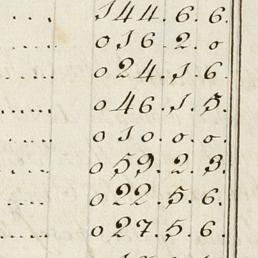 .... 144.6.6.
.... 016.2.0
.... 024.1.6.
.... 046.1.5.
.... 010.0.0.
.... 059.2.3.
.... 022.5.6.
.... 027.5.6.